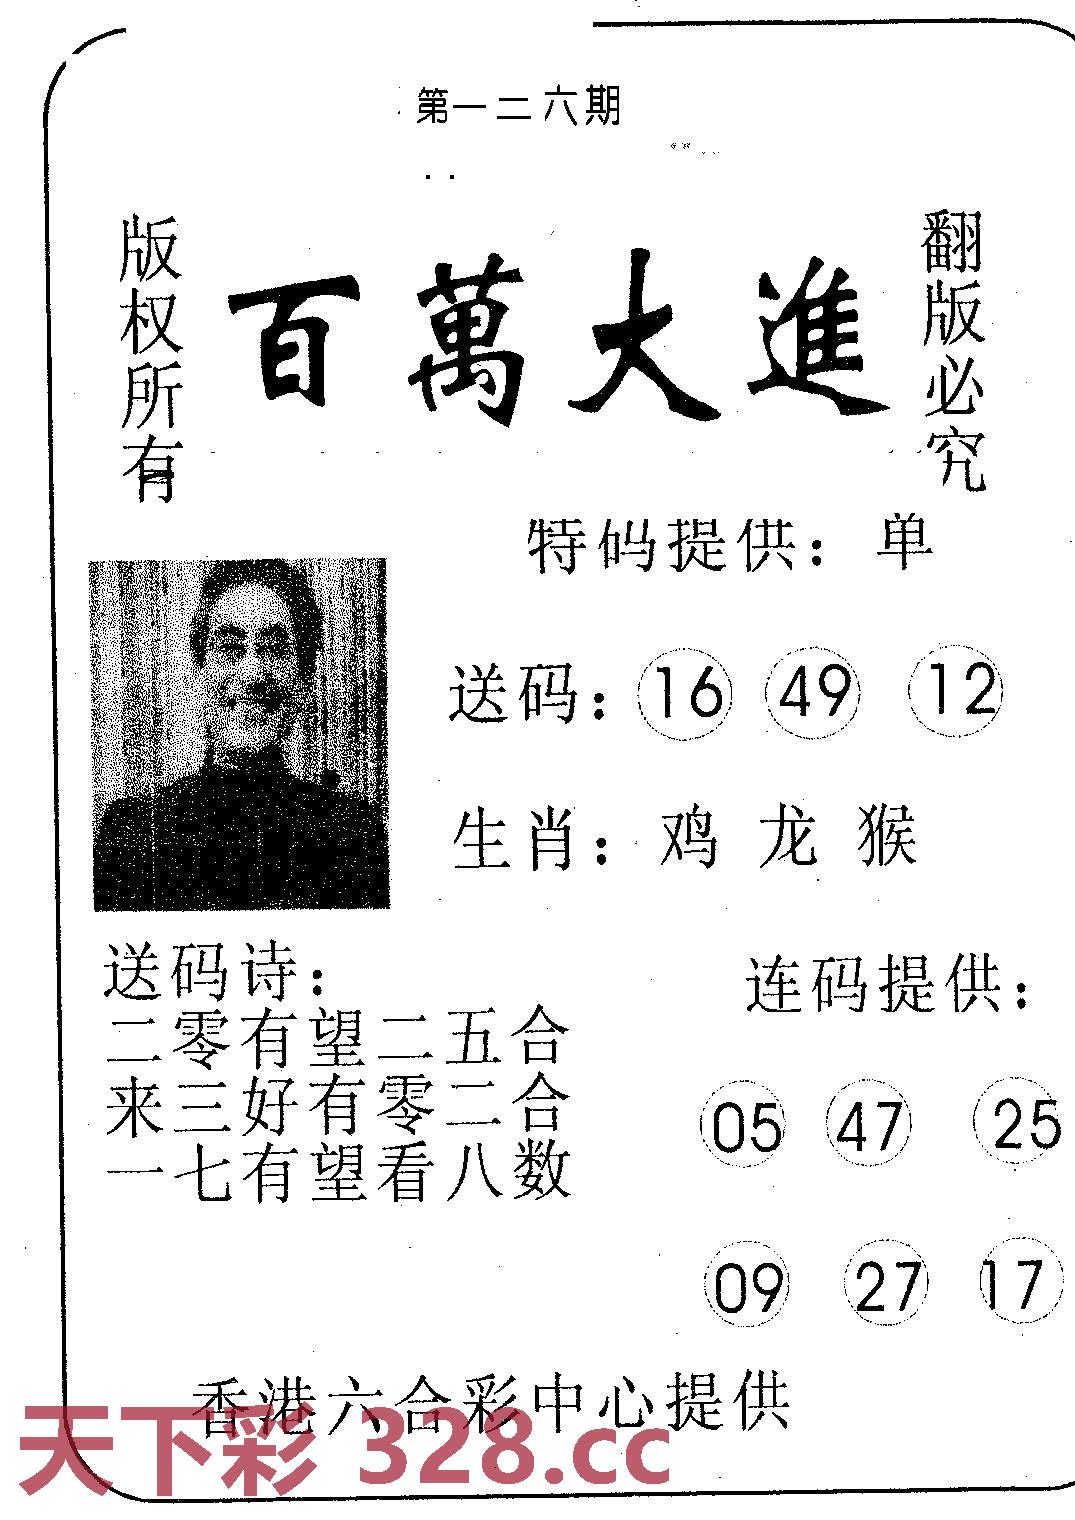 第一二六期
版权所有
百萬大進
翻版必究
特码提供：单
送码：16 49 12
生肖：鸡 龙 猴
送码诗：
二零有望二五合
来三好有零二合
一七有望看八数
连码提供：
05 47 25
09 27 17
香港六合彩中心提供
天下彩 328.cc